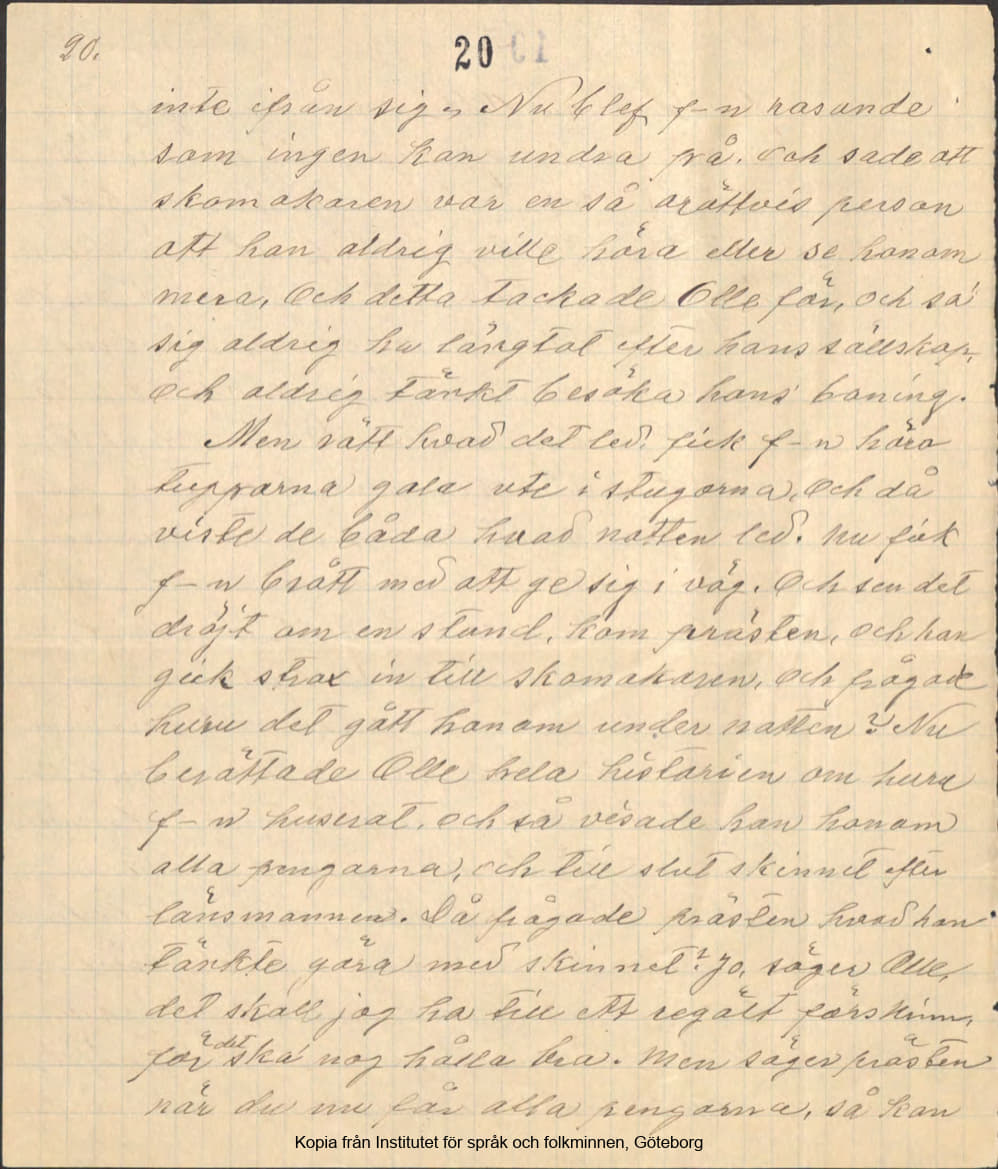 20.
20
inte ifrån sig. Nu blef f-n rasande
som ingen kan undra på. och sade att
skomakaren var en så orättvis person
att han aldrig ville höra eller se honom
mera, Och detta tackade Olle för, och sa'
sig aldrig ha längtat efter hans sällskap,
Och aldrig tänkt besöka hans boning.
Men rätt hvad det led. fick f-n höra
tupparna gala ute i stugorna, Och då
viste de båda hvad natten led. nu fick
f-n brått med att ge sig i väg. Och sen det
dröjt om en stund, kom prästen, och han
gick strax in till skomakaren, Och frågade
huru det gått honom under natten? Nu
berättade Olle hela historien om huru
f-n huserat. Och så visade han honom
alla pengarna, och till slut skinnet efter
länsmannen. Då frågade prästen hvad han
tänkte göra med skinnet? Jo, säger Olle,
det skall jag ha till ett regält förskinn,
för det ska' nog hålla bra. Men säger prästen
när du nu får alla pengarna, så kan
Kopia från Institutet för språk och folkminnen, Göteborg